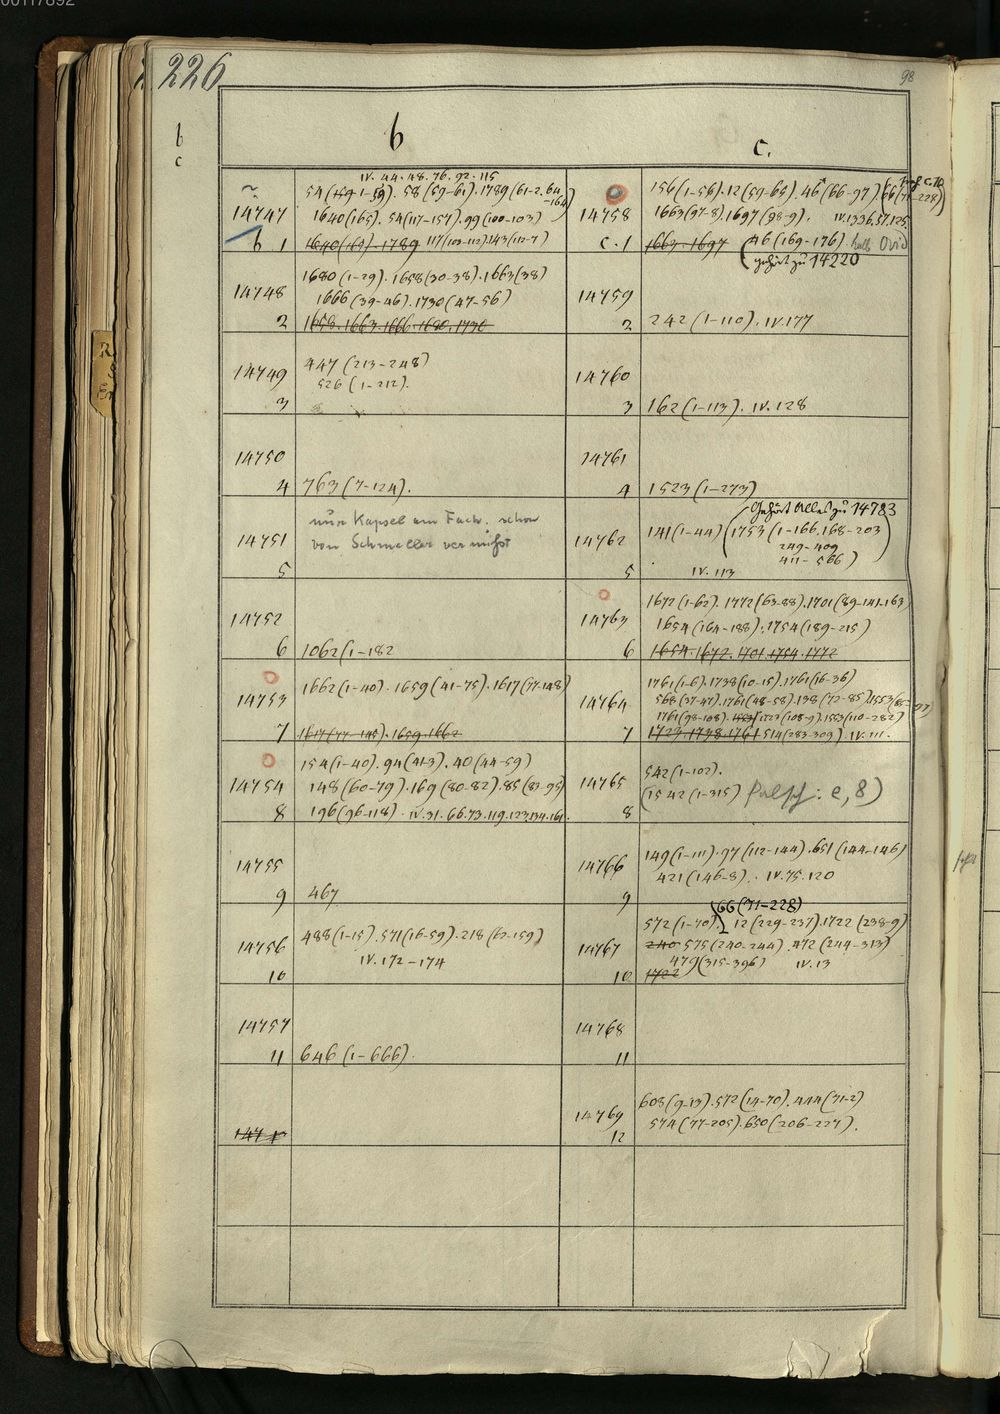 226
98
b
c
b
c.
IV. 44. 48. 76. 92. 115
54 (159 1-59). 58 (59-61). 1789 (61-2. 64
-164)
14747
1640 (165). 54 (117-157). 99 (100-103)
b 1
1640 (169) - 1789 117 (103-112) 143 (112-7)
14748
1680 (1-29). 1658 (30-38). 1663 (38)
1666 (39-46). 1730 (47-56)
2
1658. 1663. 1666. 1680. 1730
14749
447 (213-248)
526 (1-212).
3
14750
4
763 (7-124).
14751
nur Kapsel am Fach. schon
von Schmeller vermißt
5
14752
6
1062 (1-182
14753
1662 (1-40). 1659 (41-75). 1617 (77-148)
7
1617 (77-145). 1659. 1662
14754
154 (1-40). 94 (41-3). 40 (44-59)
148 (60-79). 169 (80-82). 85 (83-95)
8
196 (96-118). IV. 31. 66. 73. 119. 123. 134. 161.
14755
9
467
14756
488 (1-15). 571 (16-59). 218 (62-159)
IV. 172-174
10
14757
11
646 (1-666).
14758
156 (1-56). 12 (59-65). 46 (66-97). 66 (71-228)
c. 10
1663 (97-8). 1697 (98-9). IV. 13 36. 57. 125.
c. 1
1663. 1697 (46 (169-176). Ovid
gehört zu 14220
14759
2
242 (1-110). IV. 177
14760
3
162 (1-113). IV. 128
14761
4
1523 (1-273)
14762
Gehört Alles zu 14783
141 (1-44) (1753 (1-166. 168-203
249-409
411-566)
5
IV. 113
14763
1672 (1-62). 1772 (63-88). 1701 (89-141-163
1654 (164-188). 1754 (189-215)
6
1654. 1672. 1701. 1754. 1772
14764
1761 (1-6). 1738 (10-15). 1761 (16-36)
568 (37-47). 1761 (48-58). 138 (72-85). 1553 (85-97)
1761 (98-108). 1553 1723 (108-9). 1553 (110-282)
7
1723. 1738. 1761 514 (283-309). IV. 111.
14765
542 (1-102).
(1542 (1-315) falsch: e, 8)
8
14766
149 (1-111). 97 (112-144). 651 (144-146)
421 (146-8). IV. 75. 120
9
66 (71-228)
14767
572 (1-70). 12 (229-237). 1722 (238-9)
240 575 (240-244). 472 (244-313)
479 (315-396) IV. 13
10
1722
14768
11
14769
608 (9-13). 572 (14-70). 444 (71-2)
574 (77-205). 650 (206-227).
12